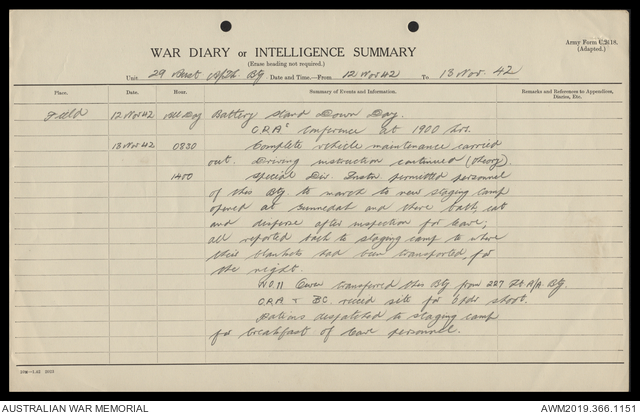 Army Form C.2118.
(Adapted.)
WAR DIARY or INTELLIGENCE SUMMARY
(Erase heading not required.)
Unit 29 Aust A/Tk Bty Date and Time.—From 12 Nov 42 To 13 Nov. 42
Place. Date. Hour. Summary of Events and Information. Remarks and References to Appendices, Diaries, Etc.
Field 12 Nov 42 All Day Battery Stand Down Day.
CRA's Conference at 1900 hrs.
13 Nov 42 0830 Complete vehicle maintenance carried
out. Driving instruction continued (theory).
1400 Special Div. Instn permitted personnel
of this Bty to march to new staging camp
opened at Gunnedah and there bath, eat
and disperse after inspection for leave;
all reported back to staging camp to where
their blankets had been transported for
the night.
W.O.II transferred this Bty from 287 Lt A/A. Bty.
CRA & BC recced site for 6 pdr shoot.
Rations dispatched to staging camp
for breakfast of leave personnel.
AUSTRALIAN WAR MEMORIAL
AWM2019.366.1151